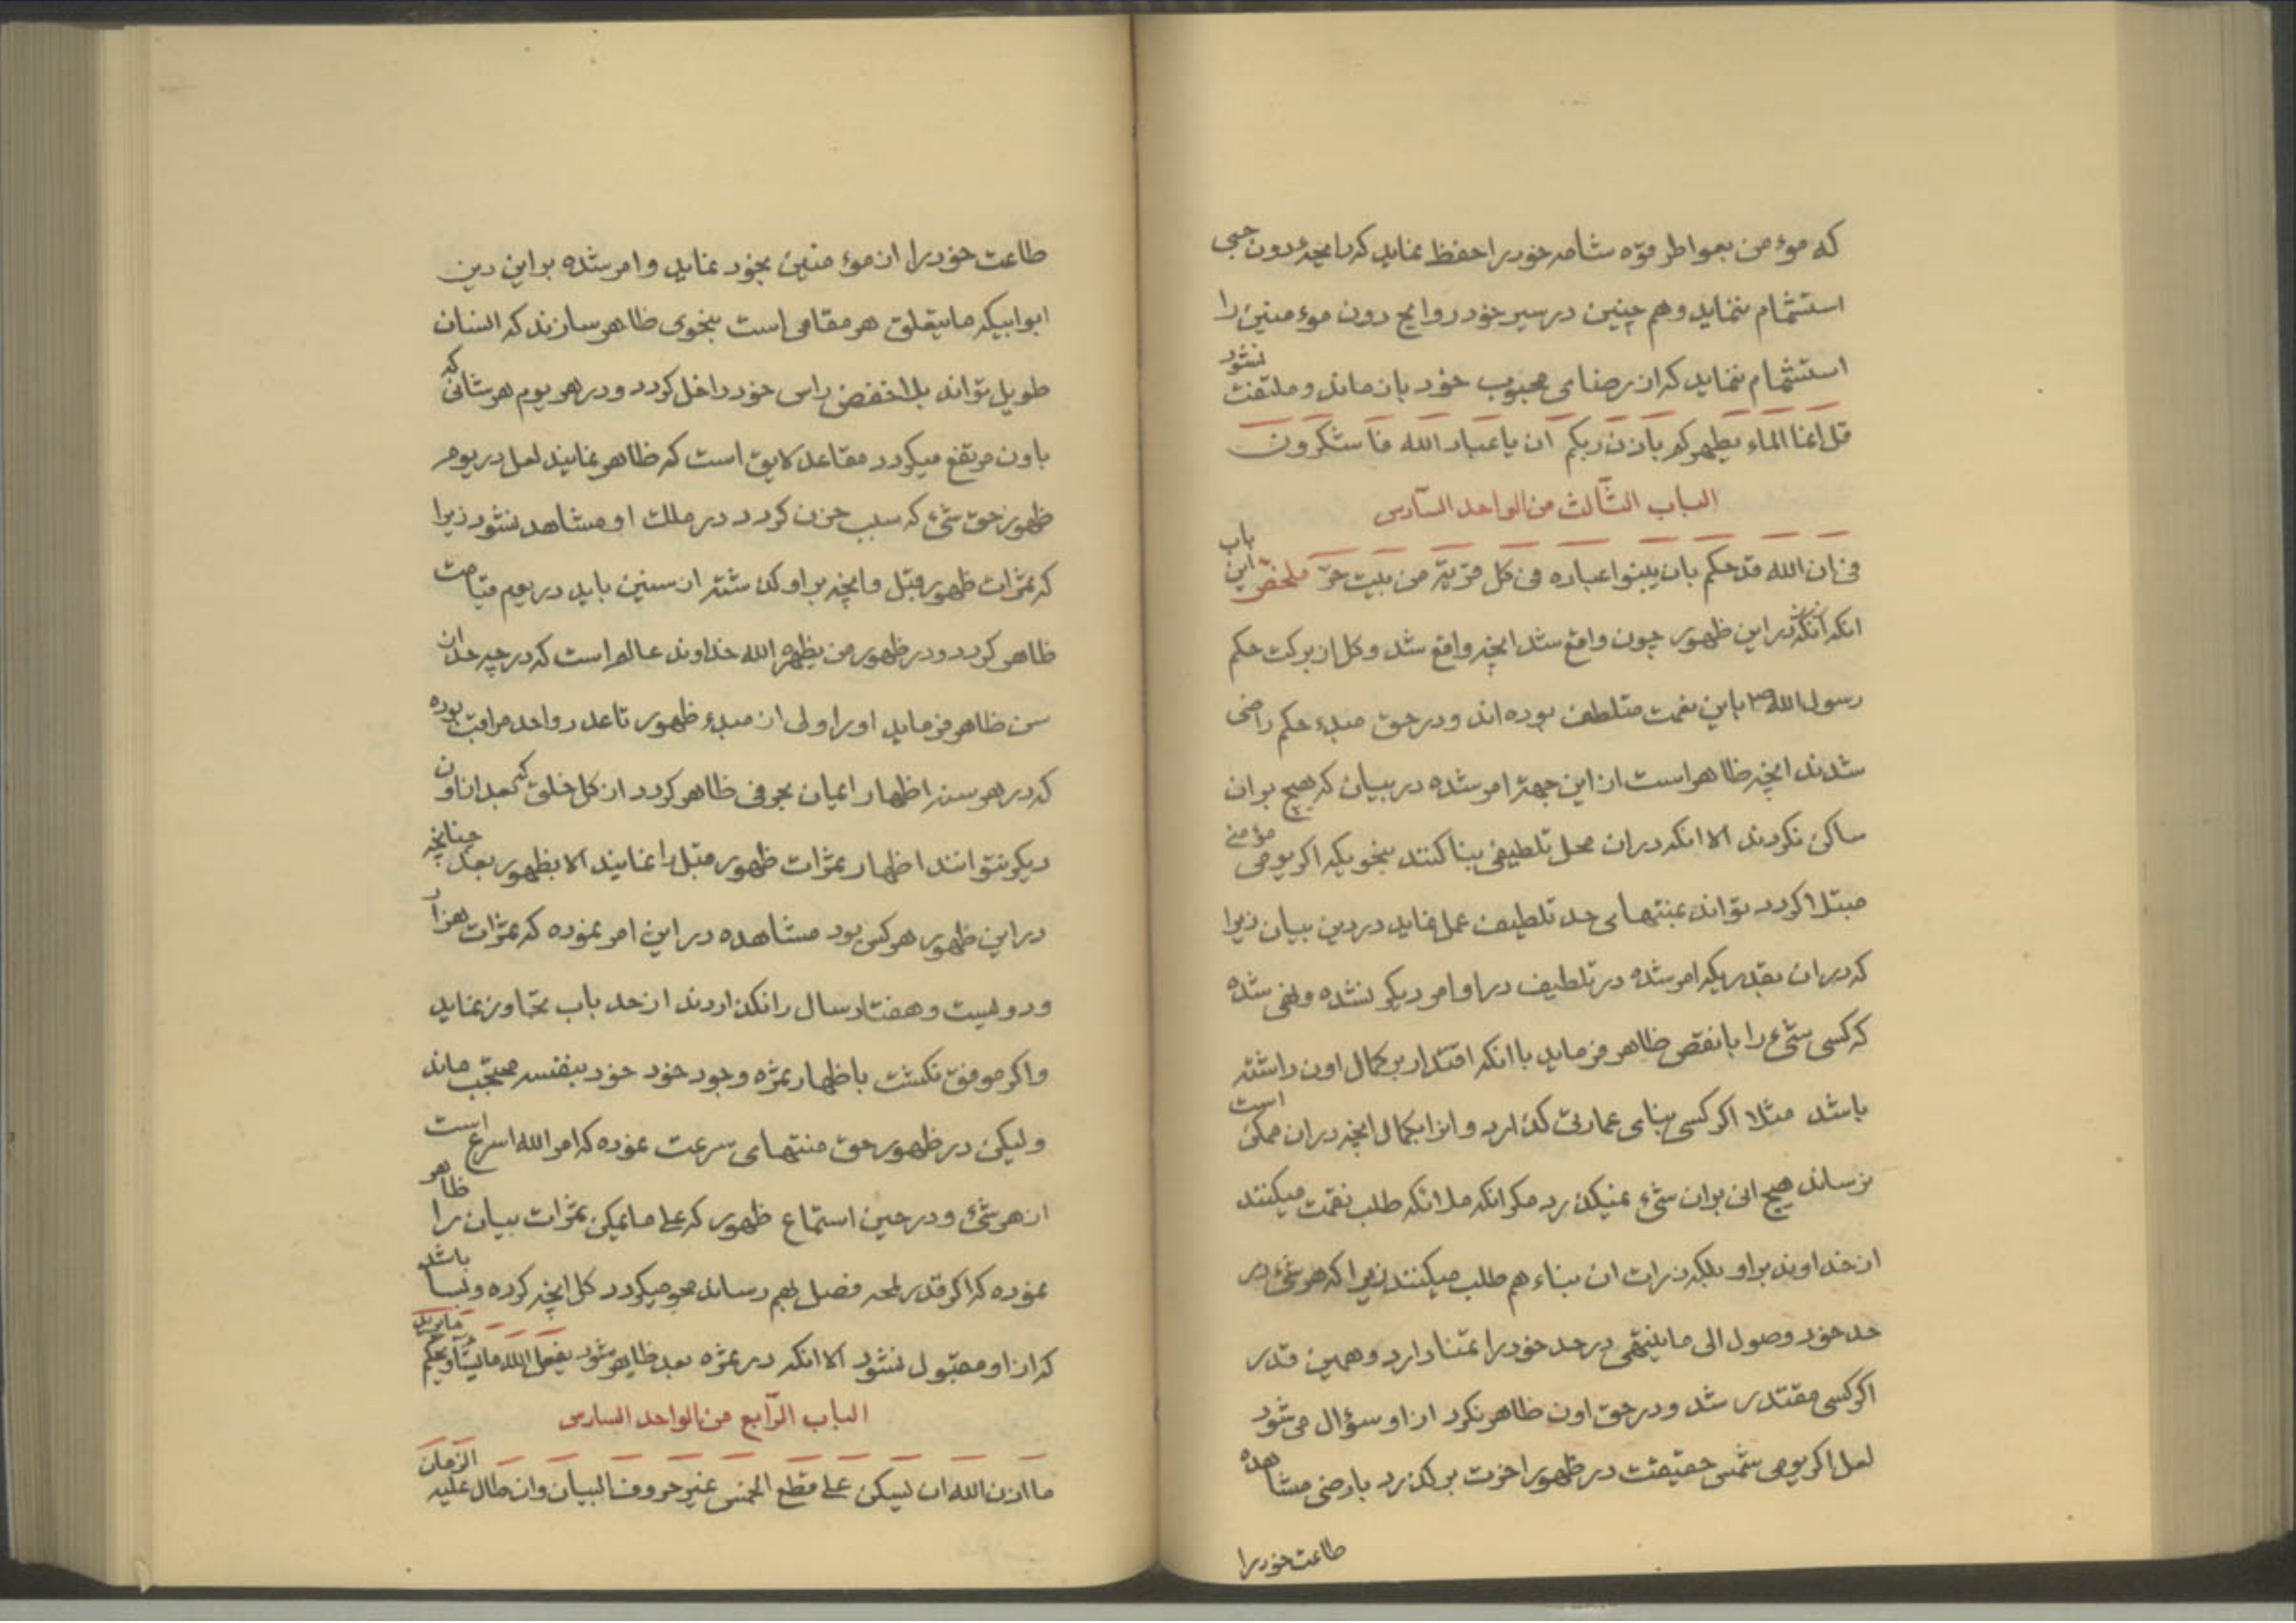 که موء من بعواطر قوّه شامه خود را حفظ نماید که رایحهٔ دون حبی
استشمام ننماید و هم چنین در سیر خود روایح دون موء منین را
استشمام ننماید که از رضای محبوب خود باز ماند و ملتفت نشود
قل انما الماء یطهرکم باذن ربکم ان یا عباد الله فاشکرون
الباب الثّالث من الواحد السّادس
فی ان الله قد حکم بان یبنوا عباده فی کل قریّة من بیت حرّ ملخّص این باب
انکه در این ظهور چون واقع شد انچه واقع شد و کل از برکت حکم
رسول الله ص باین نعمت متلطف بوده اند و در حق مبدء حکم راضی
شدند انچه ظاهر است از این جهة امر شده در بیان که هیچ بران
ساکن نگردند الا انکه دران محل تلطیفی بنا کنند بنحویکه اگر یومی موٴمنی
مبتلا گردد تواند بمنتهای حد تلطیف عمل نماید در دین بیان زیرا
که دران بقدریکه امر شده در تلطیف در اوامر دیگر نشده و نهی شده
که کسی شیٴ را با نقص ظاهر فرماید با انکه اقتدار بر کمال اون داشته
باشد مثلا اگر کسی بنای عمارتی گذارد و انرا بکمال انچه دران ممکن است
نرساند هیچ انی بران شیٴ نمیگذرد مگر انکه ملائکه طلب نقمت میکنند
از خداوند بر او بلکه ذرات ان بناء هم طلب میکنند زیرا که هر شیٴ در
حد خود وصول الی ما ینتهی در حد خود را تمنا دارد و همین قدر
اگر کسی مقتدر شد و در حق اون ظاهر نکرد از او سؤال می شود
لعل اگر یومی شمس حقیقت در ظهور اخرت بر گذرد بارضی مشاهده
طاعت خود را
طاعت خود را از موء منین بخود نماید و امر شده بر این دین
ابوابیکه ما یتعلق هر مقامی است بنحوی ظاهر سازند که انسان
طویل تواند بلا خفض راس خود داخل گردد و در هر یوم هر شانی که
باون مرتفع میگردد مقاعد لایق است که ظاهر نمایند لعل در یوم
ظهور حق شیٴ که سبب حزن گردد در ملک او مشاهد نشود زیرا
که ثمرات ظهور قبل و انچه بر او گذشته از سنین باید در یوم قیامت
ظاهر گردد و در ظهور من یظهره الله خداوند عالم است که در چه حد از
سن ظاهر فرماید او را ولی از مبدء ظهور تا عدد واحد مراقب بوده
که در هر سنه اظهار ایمان بحرفی ظاهر گردد از کل خلق که بعد از اون
دیگر نتوانند اظهار ثمرات ظهور قبل را نمایند الا بظهور بعد چنانچه
در این ظهور هر کس بود مشاهده در این امر نموده که ثمرات هزار
و دویست و هفتاد سال را نگذاردند از حد باب تجاوز نماید
و اگر موفق نگشت باظهار ثمره وجود خود خود بنفسه محتجب ماند
و لیکن در ظهور حق منتهای سرعت نموده که امر الله اسرع است
از هر شیٴ و در حین استماع ظهور که علی ما یمکن ثمرات بیان را ظاهر
نموده که اگر قدر لمحه فصل بهم رساند محو میگردد کل انچه کرده و بسا باشد
که از او مقبول نشود الا انکه در ثمره بعد ظاهر شود یفعل الله ما یشآء و یحکم ما یرید
الباب الرّابع من الواحد السادس
ما اذن الله ان یسکن علی قطع الخمس غیر حروف البیان و ان طال علیه الزمان